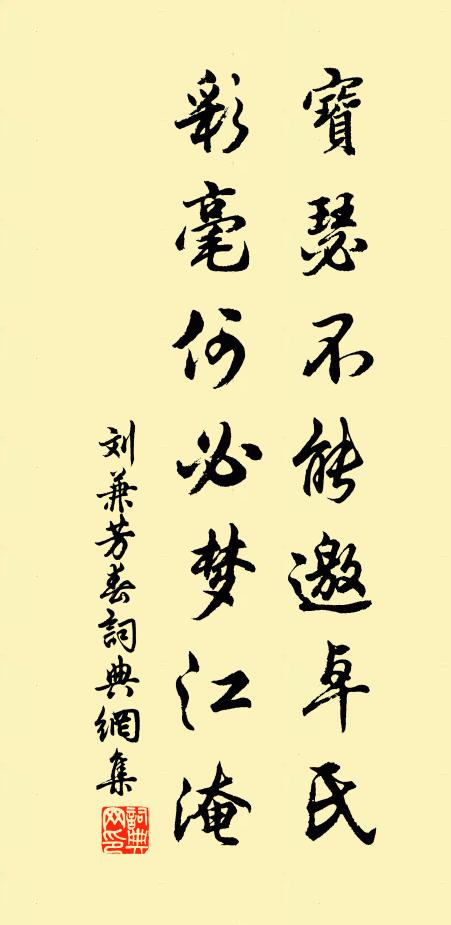 寶瑟不能邀卓氏
彩毫何必梦江淹
刘兼芳春詞典網集
詞典
网印